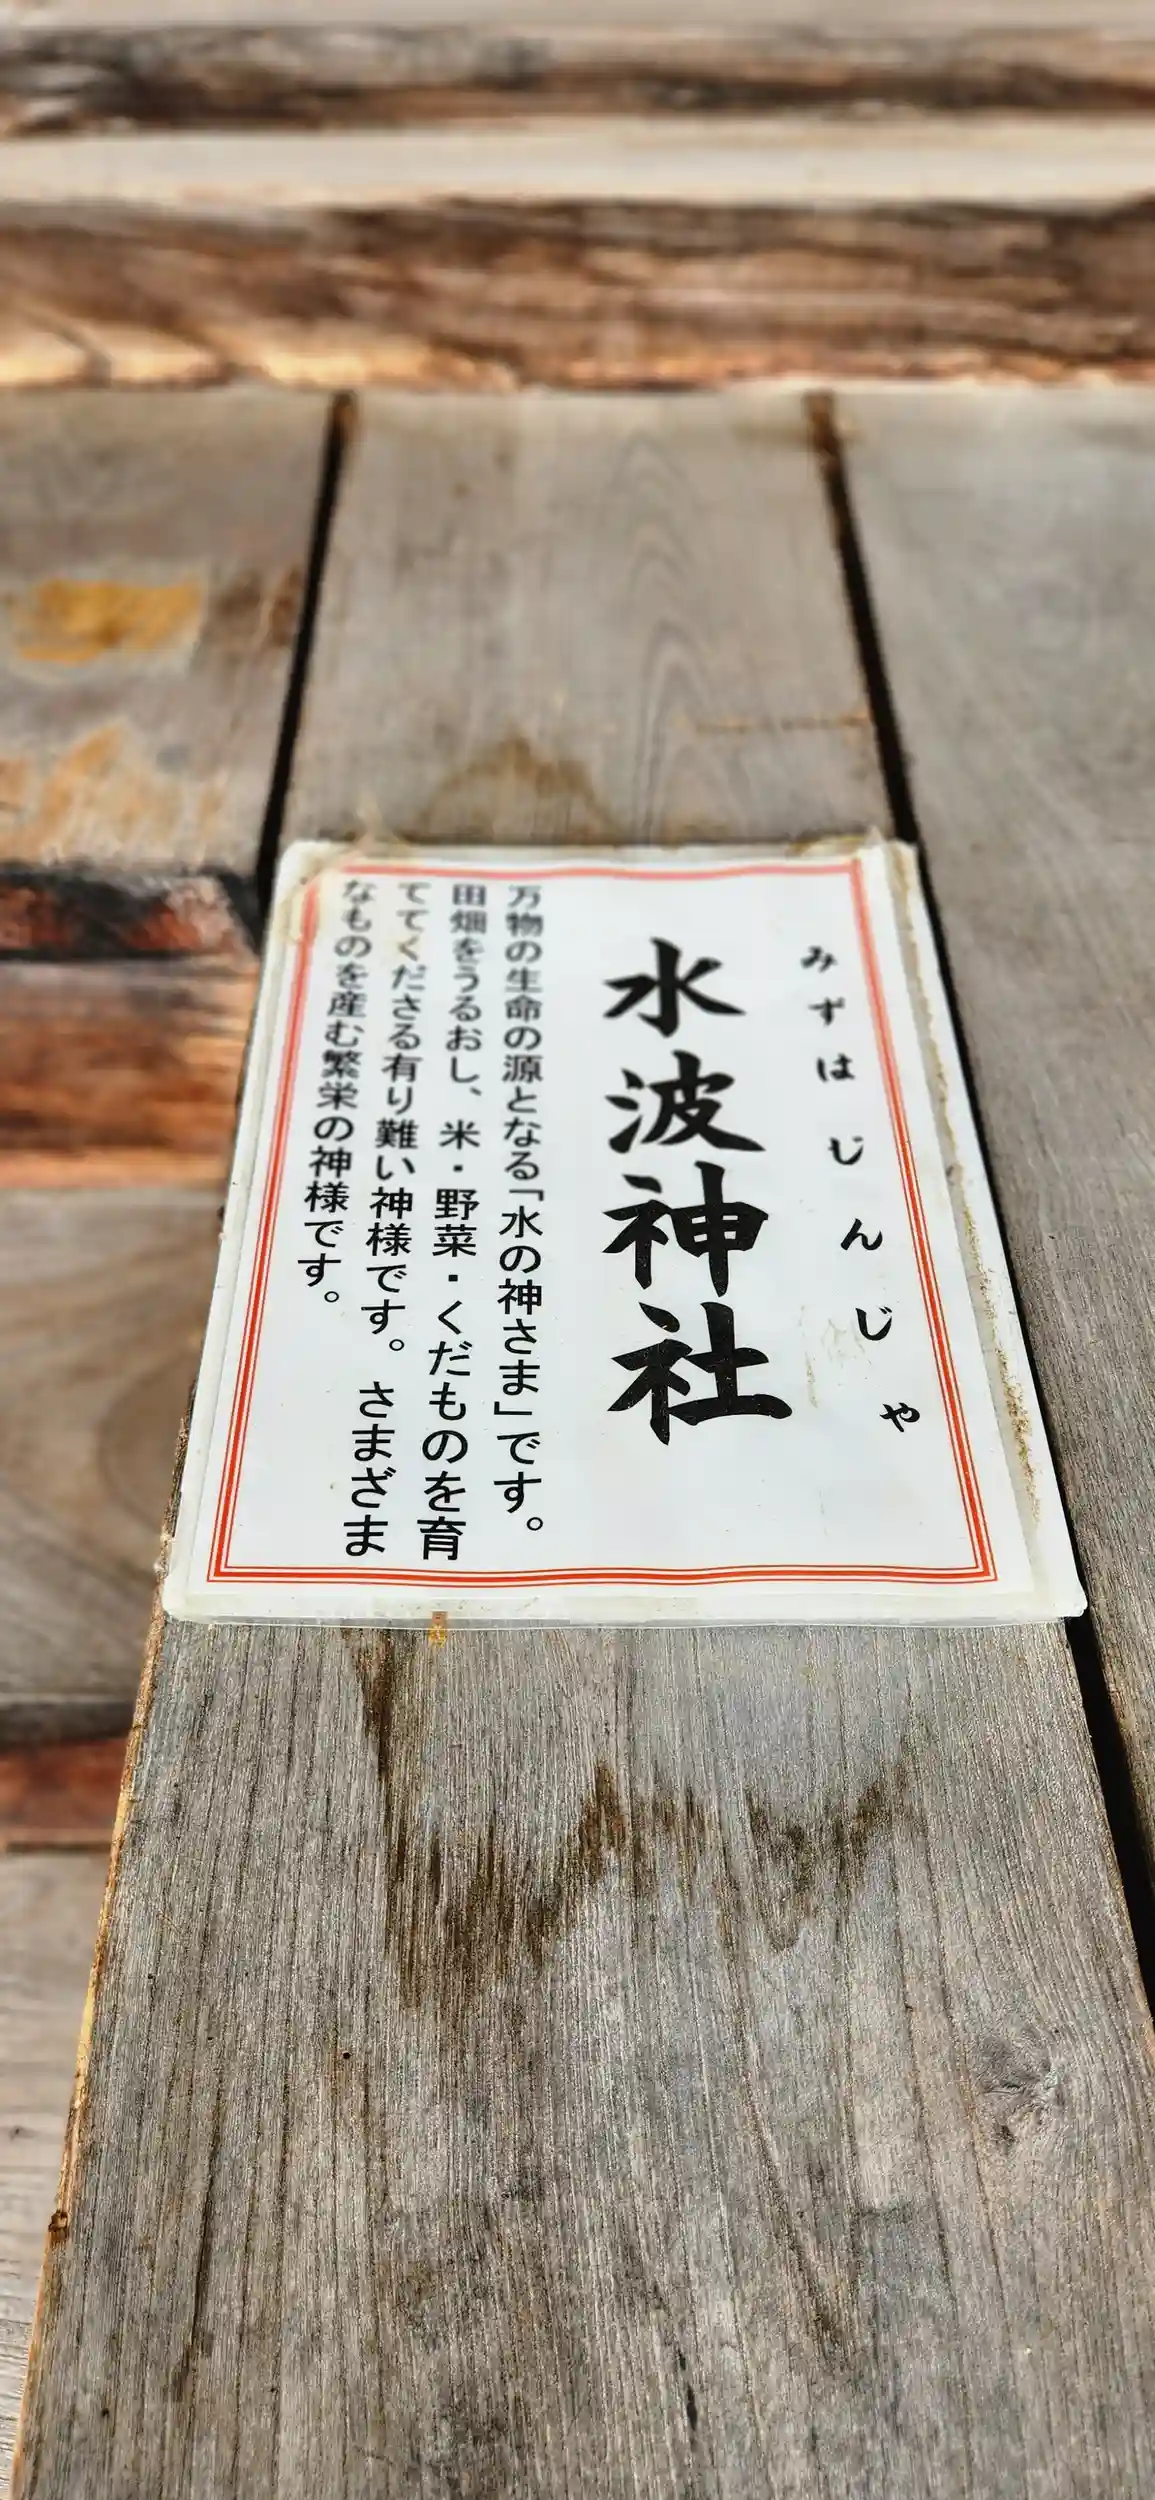 みずはじんじゃ
水波神社
万物の生命の源となる「水の神さま」です。
田畑をうるおし、米・野菜・くだものを育
ててくださる有り難い神様です。 さまざま
なものを産む繁栄の神様です。